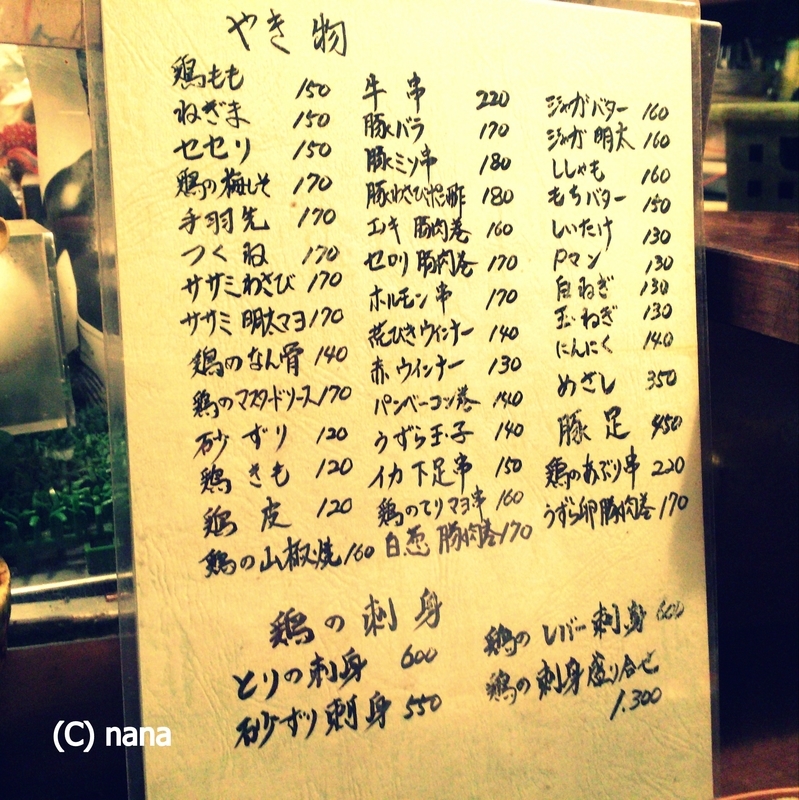 やき物
鶏もも 150
ねぎま 150
セセリ 150
鶏の梅しそ 170
手羽先 170
つくね 170
ササミわさび 170
ササミ明太マヨ 170
鶏のなん骨 140
鶏のマスタードソース 170
砂ずり 120
鶏きも 120
鶏皮 120
鶏の山椒焼 160
牛串 220
豚バラ 170
豚ミソ串 180
豚わさびポン酢 180
エノキ豚肉巻 160
セロリ豚肉巻 170
ホルモン串 170
荒びきウインナー 140
赤ウインナー 130
パンベーコン巻 140
うずら玉子 140
イカ下足串 150
鶏のてりマヨ串 160
白葱豚肉巻 170
ジャガバター 160
ジャガ明太 160
ししゃも 160
もちバター 150
しいたけ 130
Pマン 130
白ねぎ 130
玉ねぎ 130
にんにく 140
めざし 350
豚足 450
鶏のあぶり串 220
うずら卵豚肉巻 170
鶏の刺身
とりの刺身 600
砂ずり刺身 550
鶏のレバー刺身 600
鶏の刺身盛り合せ
1.300
(C) nana